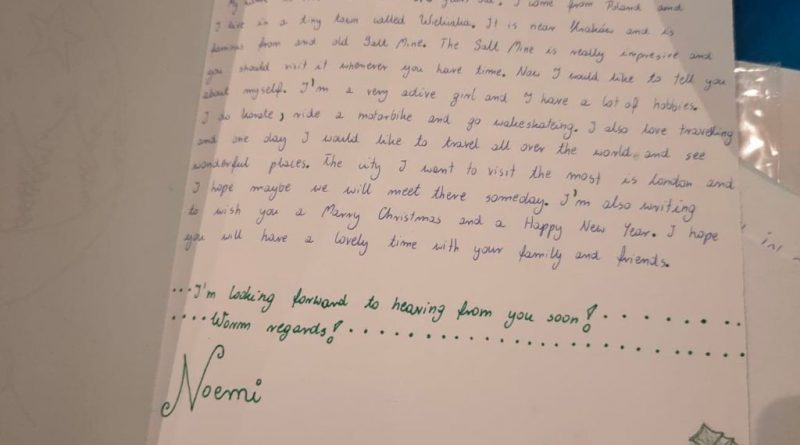 My name is years old. I come from Poland and
I live in a tiny town called Wieliczka. It is near Kraków and is
famous from and old Salt Mine. The Salt Mine is really impresive and
you should visit it whenever you have time. Now I would like to tell you
about myself. I'm a very active girl and I have a lot of hobbies.
I do karate, ride a motorbike and go wakeskateing. I also love travelling
and one day I would like to travel all over the world and see
wonderful places. The city I want to visit the most is London and
I hope maybe we will meet there someday. I'm also writing
to wish you a Marry Christmas and a Happy New Year. I hope
you will have a lovely time with your family and friends.
...I'm looking forward to hearing from you soon!.......
....Worm regards!..........................
Noemi